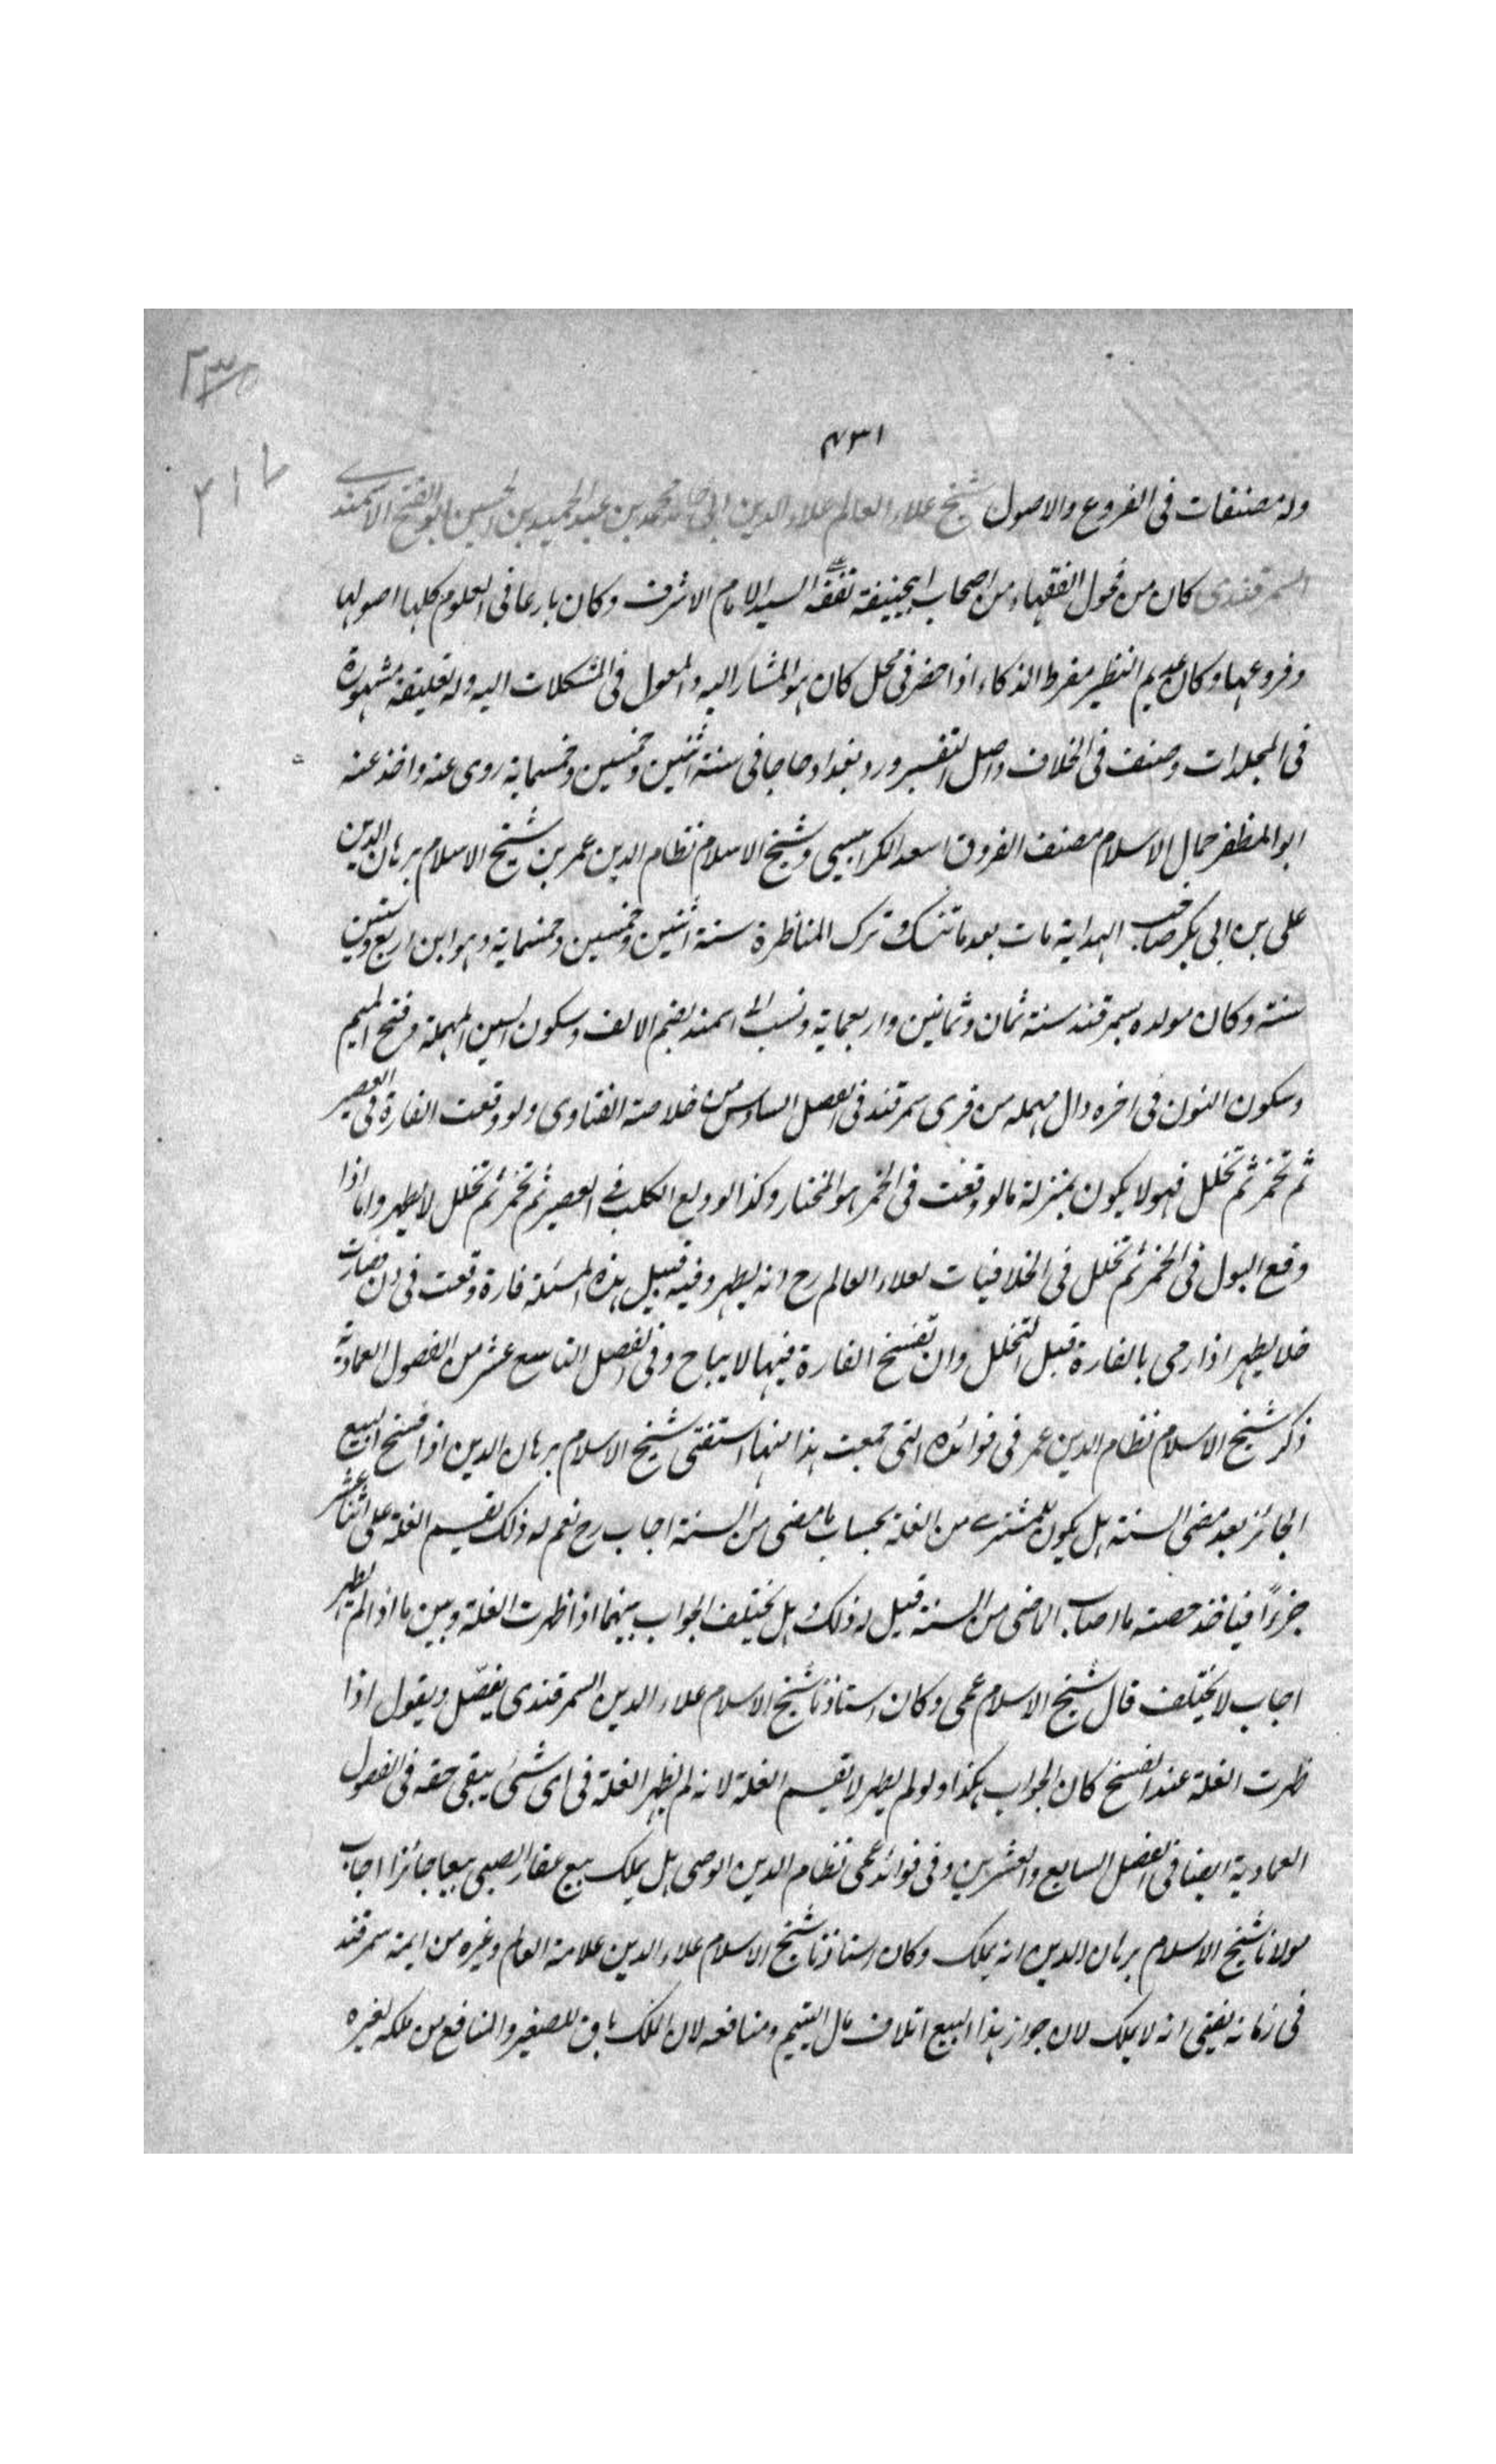 ٢٣٥
٤٣١
٢١٧
وله مصنفات فى الفروع والاصول شيخ علاء العالم علاء الدين ابى حامد محمد بن عبد الحميد بن الحسين ابو الفتح الاسمندے
السمرقندى كان من فحول الفقهاء من اصحاب ابيحنيفة تفقه السيد الامام الاشرف وكان بارعا فى العلوم كلها اصولها
وفروعها وكان عديم النظير مفرط الذكاء اذا حضر فى محل كان هو المشار اليه والمعول فى المشكلات اليه وله تعليقة مشهورة
فى المجلدات وصنف فى الخلاف واصل التفسير ورد بغداد حاجا فى سنة اثنين وخمسين وخمسماية روى عنه واخذ عنه
ابو المظفر جمال الاسلام مصنف الفروق اسعد الكرابيسى وشيخ الاسلام نظام الدين عمر بن شيخ الاسلام برهان الدين
على بن ابى بكر صاحب الهداية مات بعد ما تنسك وترك المناظرة سنة اثنين وخمسين وخمسماية وهو ابن اربع وستين
سنة وكان مولده بسمرقند سنة ثمان وثمانين واربعماية ونسب الى اسمند بضم الالف وسكون السين المهملة وفتح الميم
وسكون النون فى اخره دال مهملة من قرى سمرقند فى الفصل السادس من خلاصة الفتاوى ولو وقعت الفارة فى العصير
ثم تخمر ثم تخلل فهو لا يكون بمنزلة ما لو وقعت فى الخمر هو المختار وكذا لو ولغ الكلب فے العصير ثم تخمر ثم تخلل لا يطهر واما اذا
وقع البول فى الخمر ثم تخلل فى الخلافيات لعلاء العالم رح انه يطهر وفيه قبيل هذه المسئلة فارة وقعت فى دن فصارت
خلا يطهر اذا رمى بالفارة قبل التخلل وان تفسخ الفارة فيها لا يباح وفى الفصل التاسع عشر من الفصول العمادية
ذكر شيخ الاسلام نظام الدين عمر فى فوائده التى جمعت هذا منها استفتى شيخ الاسلام برهان الدين اذا فسخ البيع
الجائز بعد مضى السنة هل يكون للمشترے من الغلة بحساب ما مضى من السنة اجاب رح نعم له ذلك يقسم الغلة على اثنا عشر
جزءًا فياخذ حصته ما اصاب الماضى من السنة قيل له ذلك هل يختلف الجواب بينهما اذا ظهرت الغلة وبين ما اذا لم يظهر
اجاب لا يختلف قال شيخ الاسلام عمى وكان استاذنا شيخ الاسلام علاء الدين السمرقندى يفصّل ويقول اذا
ظهرت الغلة عند الفسخ كان الجواب هكذا ولو لم يظهر لا يقسم الغلة لانه لم يظهر الغلة فى اى شئ يبقى حقه فى الفصول
العمادية ايضا فى الفصل السابع والعشرين وفى فوائد عمى نظام الدين الوصى هل يملك بيع عقار الصبى بيعا جائزا اجاب
مولانا شيخ الاسلام برهان الدين انه يملك وكان استاذنا شيخ الاسلام علاء الدين علامة العالم وغيره من ايمة سمرقند
فى زمانه يفتى انه لا يملك لان جواز هذا البيع اتلاف مال اليتيم ومنافعه لان الملك باق للصغير والمنافع من ملكه لغيره